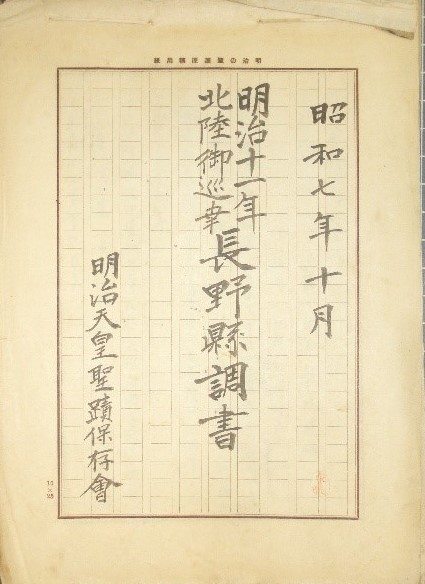 昭和七年十月
明治十一年
北陸御巡幸
長野縣調書
明治天皇聖蹟保存會
10×25